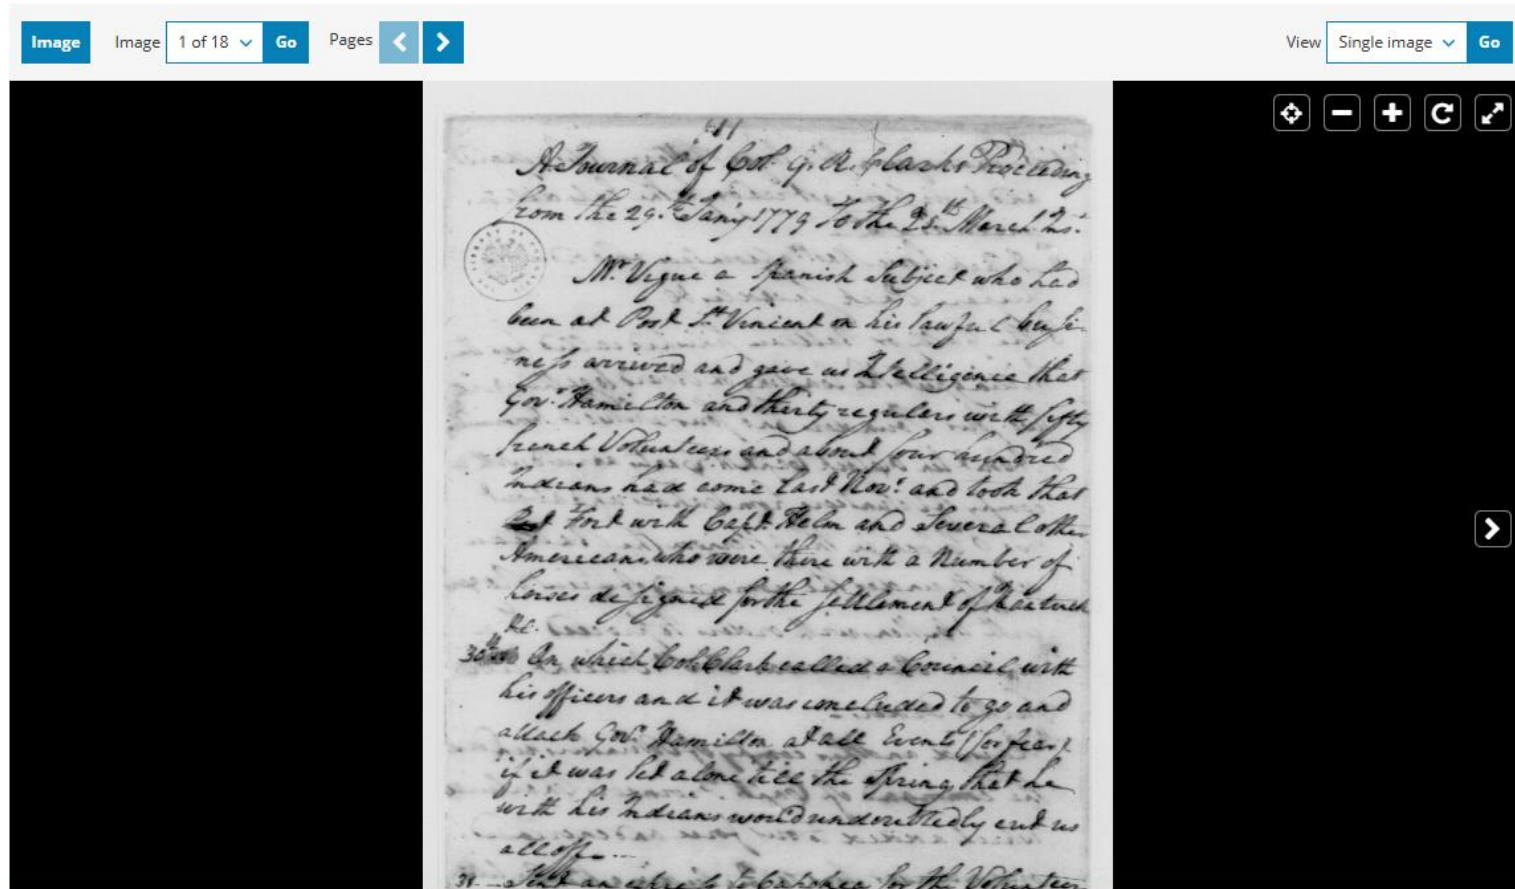 Image Image 1 of 18 Go Pages View Single image Go
A Journal of Col. G. R. Clarks Proceeding
from the 29.th Jany 1779 To the 28.th March Ins.t
Mr. Vigue a Spanish Subject who had
been at Post St. Vincent on his lawful busi-
ness arrived and gave us Intelligence that
Govr. Hamilton and thirty regulers with fifty
french Volunteers and about four hundred
Indians had come last Novr. and took that
Fort with Capt. Helm and Several other
Americans who were there with a Number of
horses designed for the settlement of
&c.
30th On which Col. Clark called a Council with
his officers and it was concluded to go and
attack Govr. Hamilton at all Events for fear
if it was let alone till the Spring that he
with his Indians would undoubtedly cut us
all off
31 Sent an express to for the Volunteer